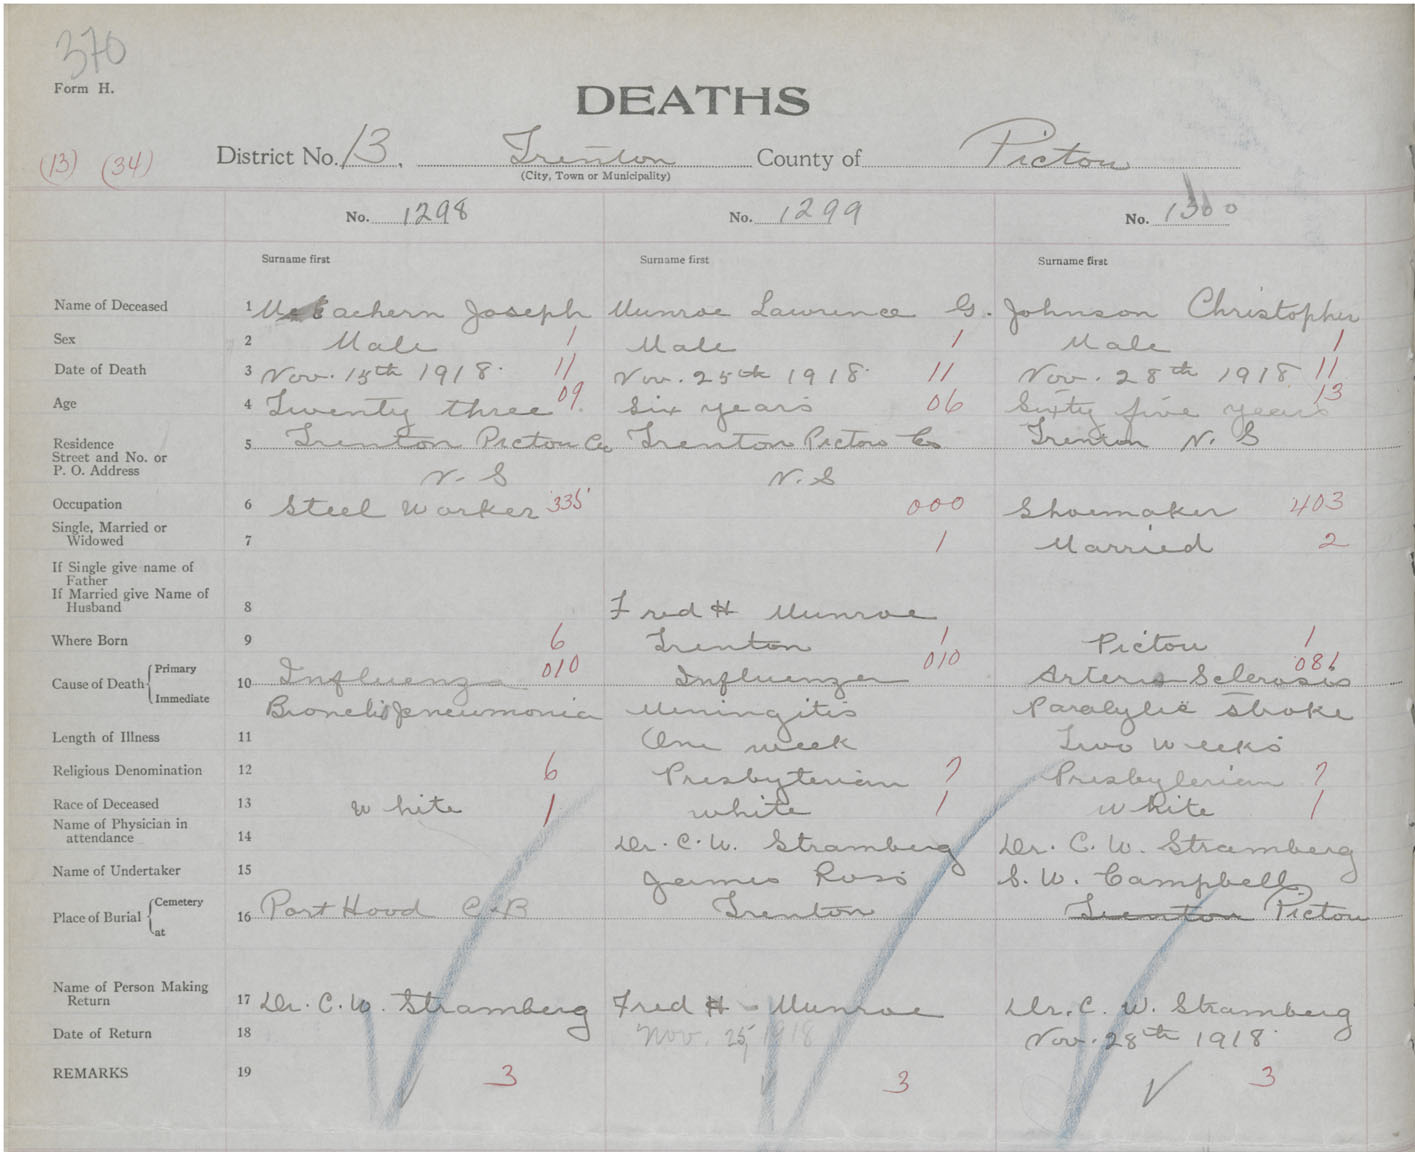 370
Form H.
DEATHS
(13) (34) District No. 13. Trenton County of Pictou
(City, Town or Municipality)
No. 1298 No. 1299 No. 1300
Surname first Surname first Surname first
Name of Deceased 1 McEachern Joseph Munroe Lawrence G. Johnson Christopher
Sex 2 Male 1 Male 1 Male 1
Date of Death 3 Nov. 15th 1918. 11 Nov. 25th 1918. 11 Nov. 28th 1918 11
Age 4 Twenty three 09 Six years 06 Sixty five years 13
Residence
Street and No. or
P. O. Address
5 Trenton Pictou Co Trenton Pictou Co Trenton N. S
N. S N. S
Occupation 6 Steel Worker 335 000 Shoemaker 403
Single, Married or
Widowed 7 1 Married 2
If Single give name of
Father
If Married give Name of
Husband 8 Fred H Munroe
Where Born 9 6 Trenton 1 Pictou 1
Cause of Death Primary Immediate
10 Influenza 010 Influenza 010 Arterio Sclerosis 081
Bronchis pneumonia Meningitis Paralytic stroke
Length of Illness 11 One week Two Weeks
Religious Denomination 12 6 Presbyterian 7 Presbyterian 7
Race of Deceased 13 White 1 White 1 White 1
Name of Physician in
attendance 14 Dr. C. W. Stramberg Dr. C. W. Stramberg
Name of Undertaker 15 James Ross S. W. Campbell
Place of Burial Cemetery at
16 Port Hood C B Trenton Trenton Pictou
Name of Person Making
Return 17 Dr. C. W. Stramberg Fred H - Munroe Dr. C. W. Stramberg
Date of Return 18 Nov. 25, 1918 Nov. 28th 1918.
REMARKS 19 3 3 3